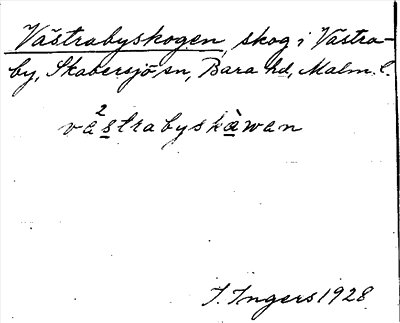 Västrabyskogen, skog i Västra-
by, Skabersjö sn, Bara hd, Malm. l.
vä²strabyskàwan
I. Ingers 1928